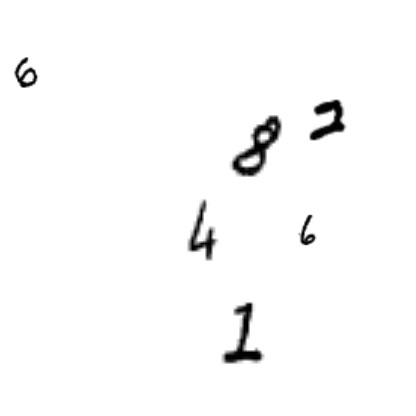 6
8 2
4 6
1